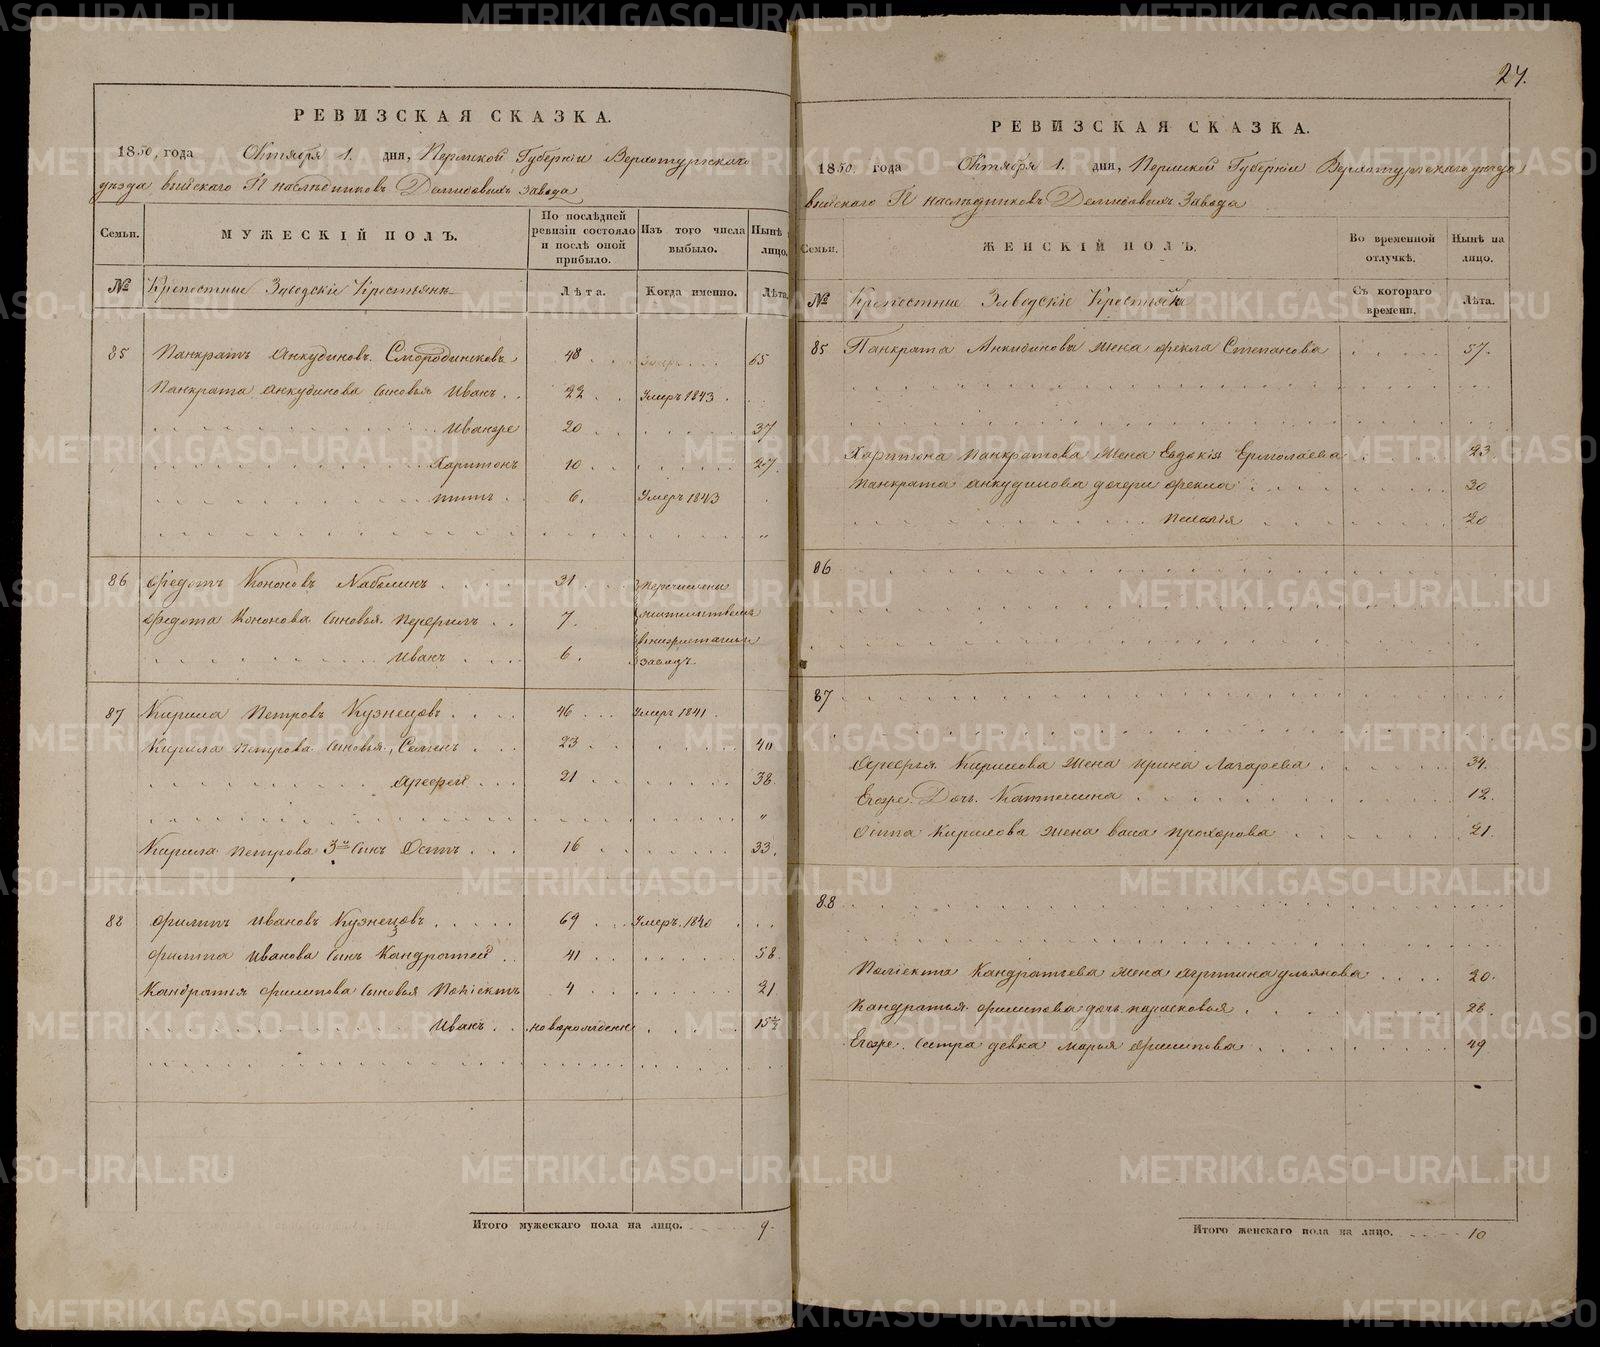 РЕВИЗСКАЯ СКАЗКА.
1850, года Октября 1. дня, Пермской Губернiи Верхотурскаго
уѣзда выйскаго Г наслѣдниковъ Демидовыхъ завода
Семьи.
МУЖЕСКIЙ ПОЛЪ.
По послѣдней ревизiи состояло и послѣ оной прибыло.
Изъ того числа выбыло.
Нынѣ лицо.
№ Крепостные Заводскiе Крестьянъ
Лѣта. Когда именно. Лѣта
85 Панкратъ Анкудиновъ Смородинсковъ 48 65
Панкрата Анкудинова сыновья Иванъ 22 Умеръ 1843
20 37
Харитонъ 10 27
Титъ 6. Умеръ 1843
86 Федотъ Кононовъ 31 Перечислены
Федота Кононова сыновья 7. жительствомъ
Иванъ 6. заводъ.
87 Кирила Петровъ Кузнецовъ 46 Умеръ 1841
Кирила Петрова сыновья, Семенъ 23 40
21 38
Кирила Петрова 3й сынъ Осипъ 16 33.
88 Филипъ Ивановъ Кузнецовъ 69 Умеръ. 1840
Филипа Иванова сынъ Кандратей 41 58
Кандратья Филипова сыновья 4 21
Иванъ новорожденъ 15
Итого мужескаго пола на лицо. 9
27.
РЕВИЗСКАЯ СКАЗКА.
1850. года Октября 1. дня, Пермской Губернiи Верхотурскаго уѣзда
выйскаго Г наслѣдниковъ Демидовыхъ Завода
Семьи.
ЖЕНСКIЙ ПОЛЪ.
Во временной отлучкѣ.
Нынѣ на лицо.
№ Крепостные Заводскiе Крестьянъ
Съ котораго времени. Лѣта.
85 Панкрата Анкидиновъ жена Фекла Степанова 57.
Харитона Панкратова жена Евдокiя Ермолаева 23
Панкрата Анкудинова дочери Фекла 30
20
86
87
Кирилова жена Ирина Лазарева 34.
Егоже Дочь Катилина 12.
Осипа Кирилова жена васа Прохорова 21.
88
Кандратьева жена ульянова 20.
Кандратья Филипова дочь парасковья 26.
Егоже. Сестра девка Марья Филипова 49
Итого женскаго пола на лицо. 10
METRIKI.GASO-URAL.RU